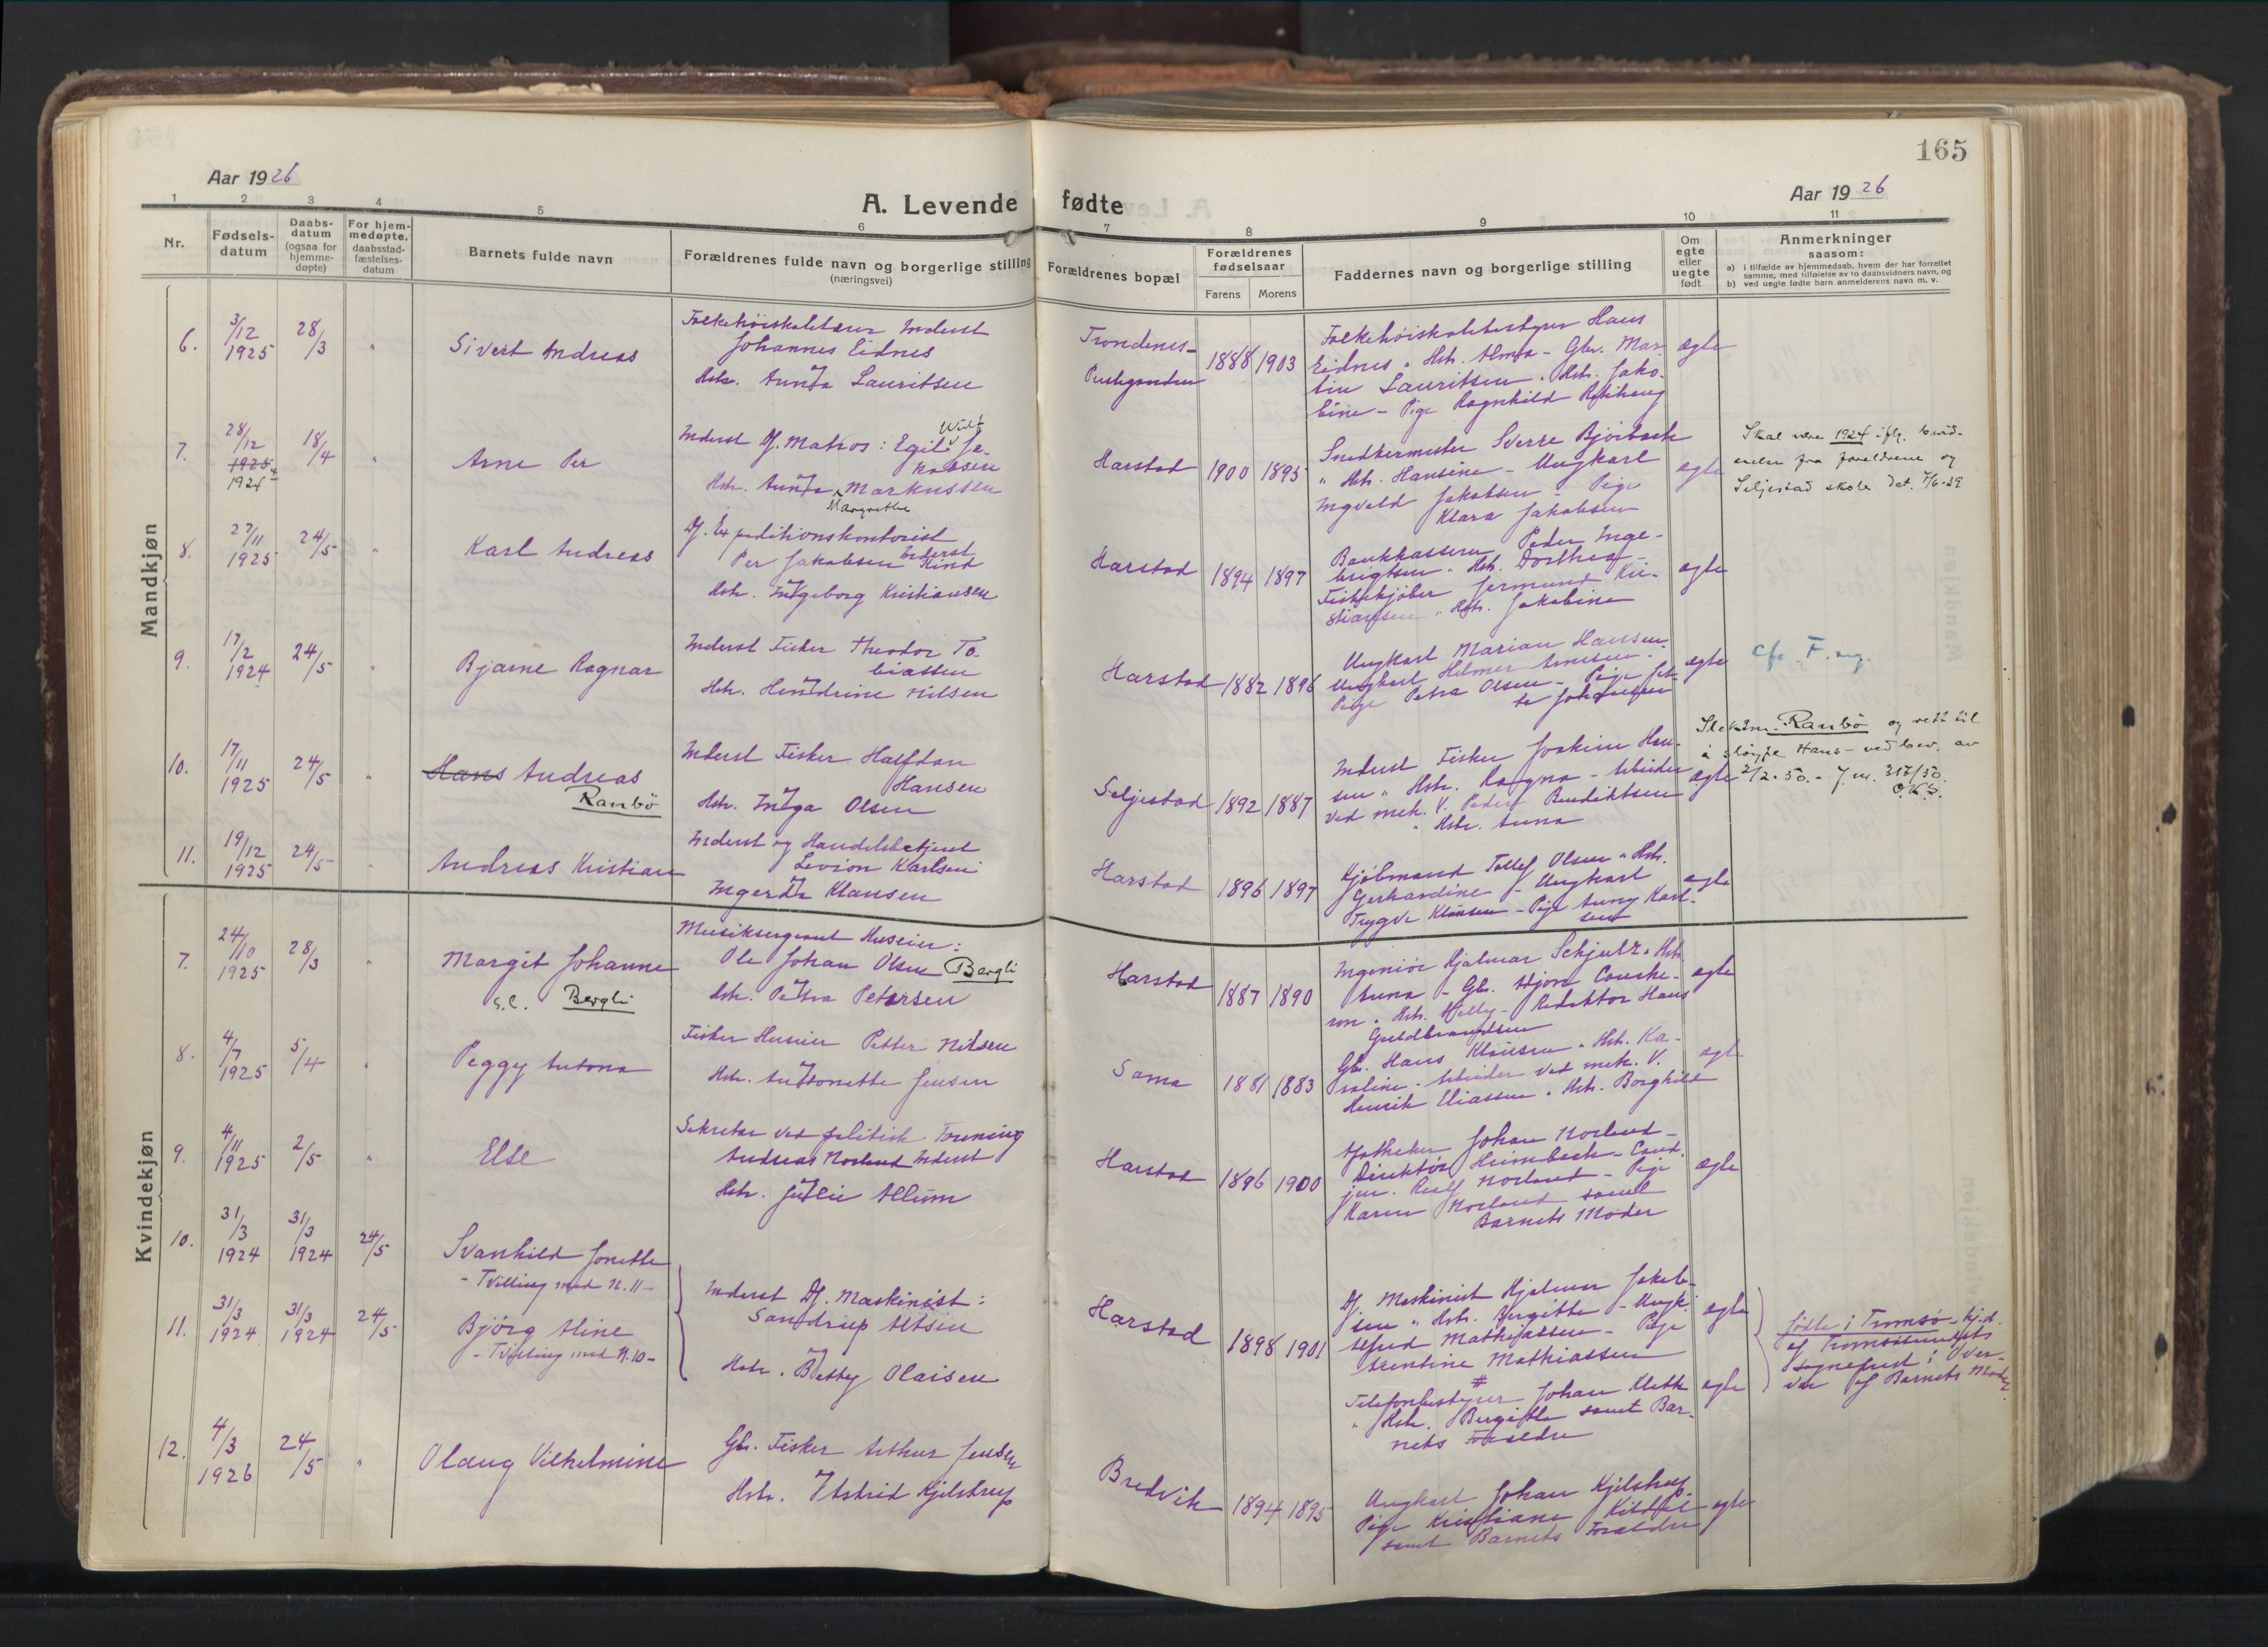 165
Aar 1926
A. Levende fødte
Aar 1926
1 2 3 4 5 6 7 8 9 10 11
Nr.
Fødsels-
datum
Daabs-
datum
(ogsaa for
hjemme-
døpte)
For hjem-
medøpte.
daabsstad-
fæstelses-
datum
Barnets fulde navn
Forældrenes fulde navn og borgerlige stilling
(næringsvei)
Forældrenes bopæl
Forældrenes
fødselsaar
Farens Morens
Faddernes navn og borgerlige stilling
Om
egte
eller
uegte
født
Anmerkninger
saasom:
a) i tilfælde av hjemmedaab, hvem der har forrettet
samme, med tilføielse av to daabsvidners navn, og
b) ved uegte fødte barn anmelderens navn m. v.
Mandkjøn
6. 3/12 1925 28/3 "
Sivert Andreas
Folkehøiskolelærer Inderst
Johannes Eidnes
Hstr. Anna Lauritsen
Trondenes-
1888 1903
Folkehøiskolebestyrer Hans
Eidnes " Hstr. Alma - Gbr. Mar-
tin Lauritsen " Hstr. Jako-
bine - Pige Ragnhild
egte
7. 28/12 1925 1924 18/4 "
Arne Per
Inderst Df. Matros: Egil Ja-
kobsen
Hstr. Anna Markussen
Margrethe
Harstad
1900 1895
Snedkermester Sverre Bjørbæck
" Hstr. Hansine - Ungkarl
Ingvald Jakobsen - Pige
Klara Jakobsen
egte
Skal være 1924 iflg. bevid-
nelse fra foreldrene og
Seljestad skole dat. 7/6-39
8. 27/11 1925 24/5 "
Karl Andreas
Df. Expeditionskontorist
Per Jakobsen Hind Inderst
Hstr. Ingeborg Kristiansen
Harstad
1894 1897
Bankkasserer Peder Inge-
brigtsen " Hstr. Dorthea -
Fiskekjøber Jermund Kri-
stiansen " Hstr. Jakobine
egte
9. 17/2 1924 24/5 "
Bjarne Ragnar
Inderst Fisker Theodor To-
biassen
Hstr. Hendrine Nilsen
Harstad
1882 1896
Ungkarl Marian Hansen -
Ungkarl Helmer Arnesen -
Pige Petra Olsen - Pige
Johansen
egte
cfr. F.
10. 17/11 1925 24/5 "
Hans Andreas
Ranbö
Inderst Fisker Halfdan
Hansen
Hstr. Inga Olsen
Seljestad
1892 1887
Inderst Fisker Joakim Han-
sen " Hstr. Ragna - Arbeider
ved mek. V. Peder Benediktsen
" Hstr. Anna
egte
Slektsn. Ranbö og rett til
å sløyfe Hans - ved bev. av
2/2-50. - J.nr. 317/50.
11. 19/12 1925 24/5 "
Andreas Kristian
Inderst og Handelsbetjent
Levion Karlsen
Ingerda Klausen
Harstad
1896 1897
Kjølmand Tollef Olsen " Hstr.
Gerhardine - Ungkarl
Trygve Klausen - Pige Anny Karl-
sen
egte
Kvindekjøn
7. 24/10 1925 28/3 "
Margit Johanne
s.e. Bergli
Musiksergeant Huseier:
Ole Johan Olsen Bergli
Hstr. Petra Petersen
Harstad
1887 1890
Ingeniør Hjalmar Schjelz " Hstr.
Anna - Gbr. Hjorv
" Hstr. - Redaktør Hans
Guldbrandsen
egte
8. 4/7 1925 5/4 "
Peggy Antona
Fisker Huseier Petter Nilsen
Hstr. Antonette Jensen
Sama
1881 1883
Gbr. Hans Klausen " Hstr. Ka-
roline - Arbeider ved mek. V.
Henrik Eliassen " Hstr. Borghild
egte
9. 4/11 1925 2/5 "
Else
Sekretær ved politisk Forening
Andreas Norlund Inderst
Hstr. Julie Allum
Harstad
1896 1900
Apotheker Johan Norlund -
Direktør Heimbeck - Cand.
jur. Norlund - Pige
Karen Norlund samt
Barnets Moder
egte
10. 31/3 1924 31/3 1924 24/5
Svanhild Jonette
- Tvilling med N. 11 -
11. 31/3 1924 31/3 1924 24/5
Bjørg Aline
- Tvilling med N. 10 -
Inderst Df. Maskinist:
Sandrup Nilsen
Hstr. Betty Olaisen
Harstad
1898 1901
Df. Maskinist Hjalmar Jakob-
sen " Hstr. Bergitte - Ungk.
Alfred Mathiassen - Pige
Arentine Mathiassen
#
Telefonbestyrer Johan Kletk
" Hstr. Bergitte samt Bar-
nets Forældre
egte
egte
Født i Tromsø - hj.d.
af Tromsøsundets
sognepræst i Over-
vær af Barnets Moder
12. 4/3 1926 24/5 "
Olaug Vilhelmine
Gbr. Fisker Arthur Jensen
Hstr. Astrid Kjelstrup
Bredvik
1894 1895
Ungkarl Johan Kjelstrup -
Pige Kristiane
samt Barnets Forældre
egte